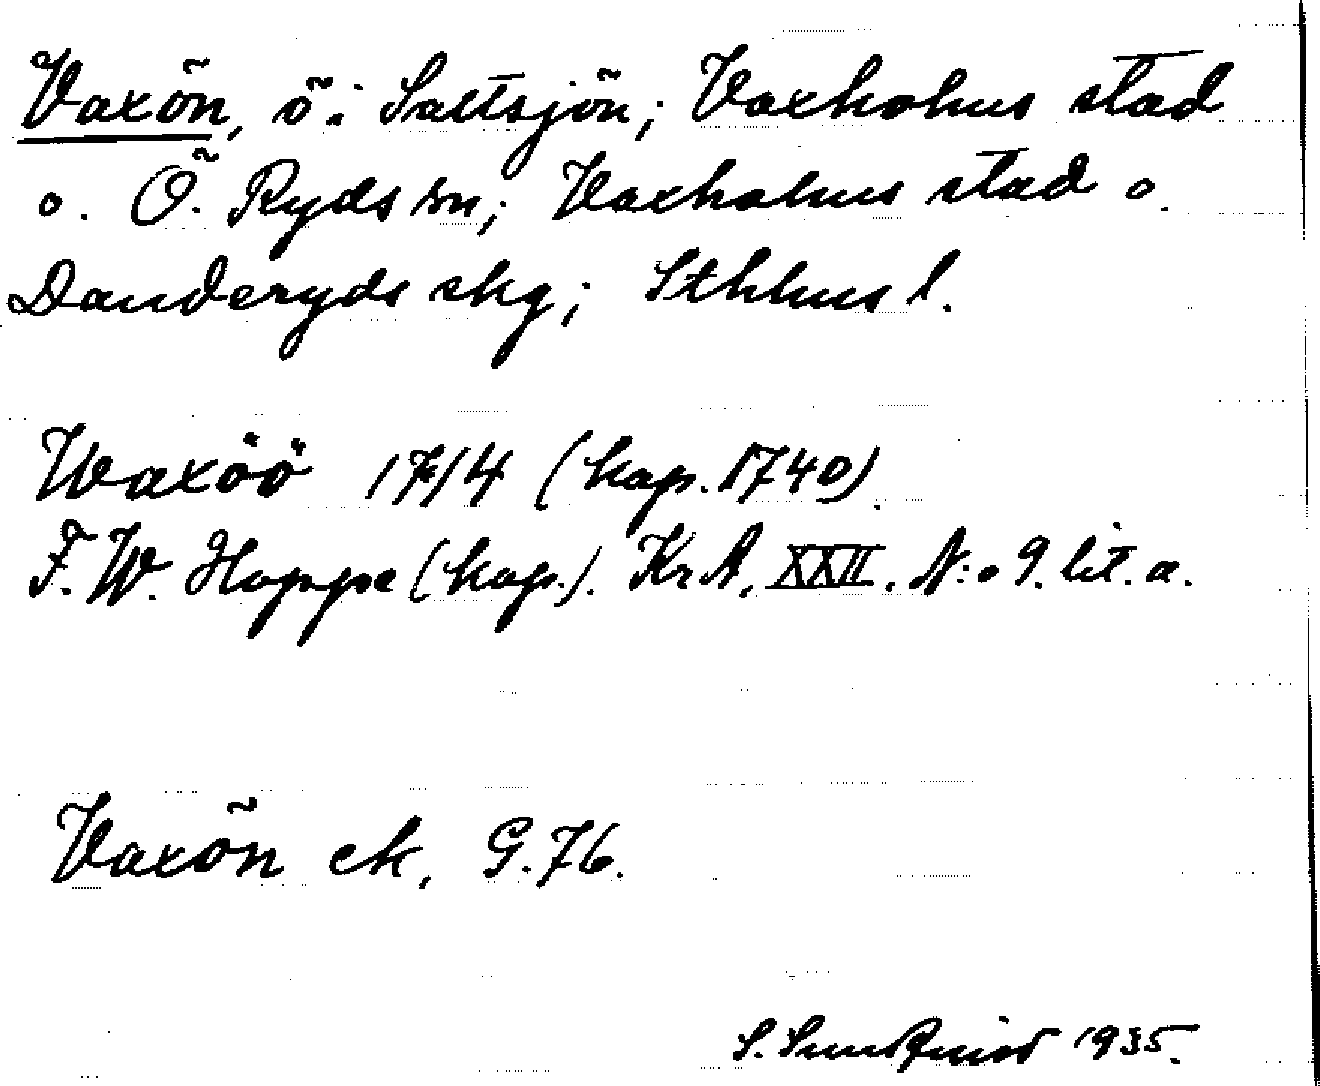 Vaxön, ö i Saltsjön; Vaxholms stad
o. Ö. Ryds sn; Vaxholms stad o.
Danderyds skg; Sthlms l.
Waxöö 1714 (kop. 1740).
F. W. Hoppe (kop.). KrA, XXII. N:o 9. lit. a.
Vaxön ek. G. 76.
S. Sundquist 1935.